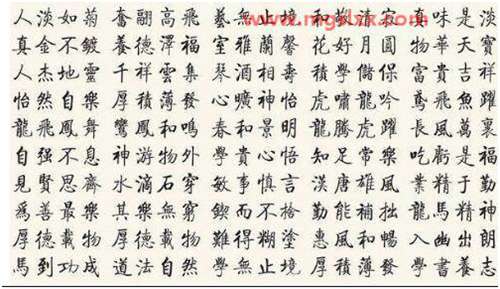 人淡如菊 奮翮高飛 藝無止境 和敬清寂 真味是淡
真金不鍍 養德澤福 室雅蘭馨 花好月圓 物華天寶
人杰地靈 千祥雲集 琴酒相壽 積學儲 富貴吉祥
怡然自樂 厚積薄發 心曠神怡 虎嘯龍吟 鳶飛魚躍
龍飛鳳舞 鸞鳳和鳴 春和景明 龍騰虎躍 長風萬裏
自强不息 神游物外 學貴心悟 知足常樂 吃虧是福
見賢思齊 水滴石穿 敏事慎言 漢唐雄風 業精于勤
爲善最樂 其樂無窮 鍥而不捨 勤能補拙 龍馬精神
厚德載物 厚德載物 難得糊塗 惠風和暢 入幽出朗
馬到功成 道法自然 學無止境 厚積薄發 學書養志